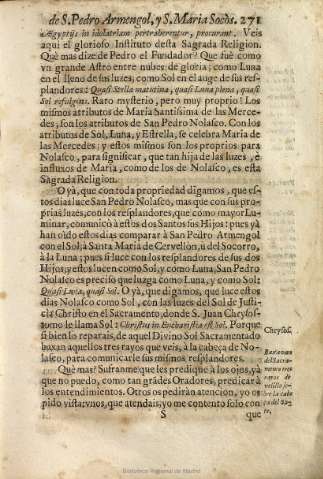 de S. Pedro Armengol, y S. Maria Socòs. 271
Ægyptijs in idolatriam pertraherentur, procurant. Veis
aqui el glorioso Instituto desta Sagrada Religion.
Què mas dize de Pedro el Fundador? Que fuè como
vn grande Astro entre nubes de gloria; como Luna
en el lleno de sus luzes, como Sol en el auge de sus res-
plandores: Quasi Stella matutina, quasi Luna plena, quasi
Sol refulgens. Raro mysterio, pero muy proprio! Los
mismos atributos de Maria Santissima de las Merce-
des, son los atributos de San Pedro Nolasco. Con los
atributos de Sol, Luna, y Estrella, se celebra Maria de
las Mercedes; y estos mismos son los proprios para
Nolasco, para significar, que tan hija de las luzes, è
influxos de Maria, como de los de Nolasco, es esta
Sagrada Religion.
O yà, que con toda propriedad digamos, que es-
tos dias luce San Pedro Nolasco, mas que con sus pro-
prias luzes, con los resplandores, que como mayor Lu-
minar, comunicò à estos dos Santos sus Hijos: pues yà
han oìdo estos dias comparar à San Pedro Armengol
con el Sol; à Santa Maria de Cervellon, ù del Socorro,
à la Luna; pues si luce con los resplandores de sus dos
Hijos, y estos lucen como Sol, y como Luna, San Pedro
Nolasco es preciso que luzga como Luna, y como Sol:
Quasi Luna, quasi Sol. O yà, que digamos, que luce estos
dias Nolasco como Sol, con las luzes del Sol de Justi-
cia Christo en el Sacramento, donde S. Juan Chrysos-
tomo le llama Sol: Christus in Eucharistia est Sol. Porque
si bien se repara, is de aquel Divino Sol Sacramentado
baxan aquellos tres rayos que veis, à la cabeça de No-
lasco, para comunicarle sus mismos resplandores.
Què mas? Sufranme que les predique à los ojos, yà
que no puedo, como tan grãdes Oradores, predicar à
los entendimientos. Otros os pediràn atencion, yo os
pido vista; vnos, que atendais; yo me contento solo con
S que
Chrysos.
Baxavan
del Sacra-
mento tres
rayos de
so-
bre la cabe